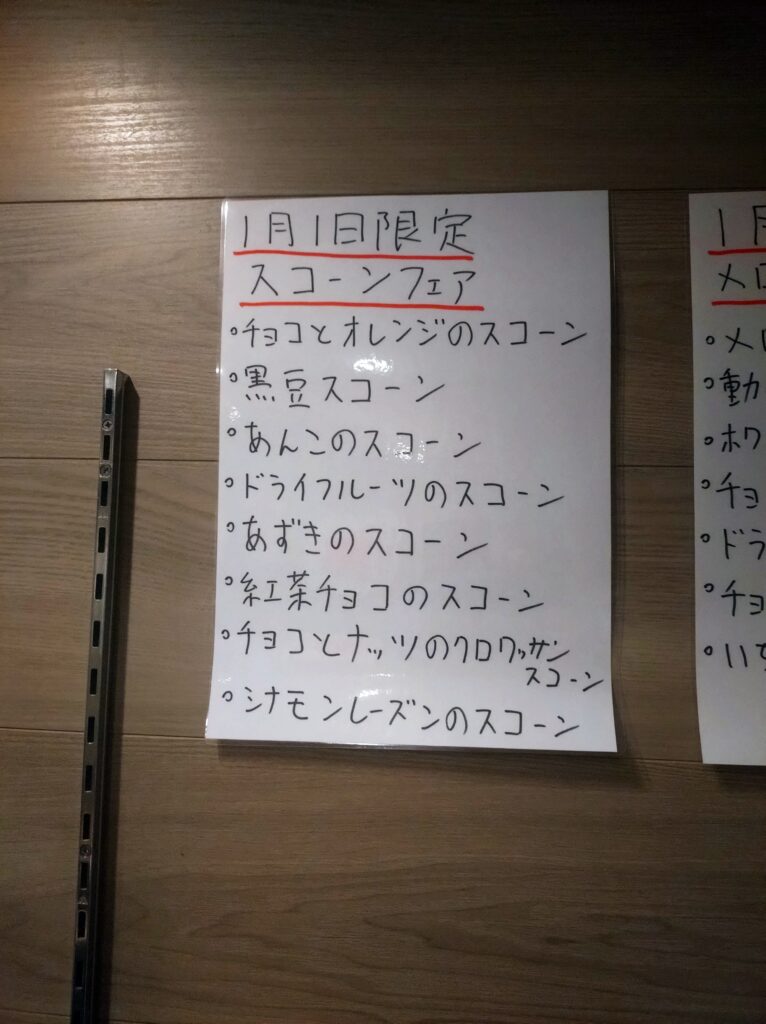 1月1日限定
スコーンフェア
°チョコとオレンジのスコーン
°黒豆スコーン
°あんこのスコーン
°ドライフルーツのスコーン
°あずきのスコーン
°紅茶チョコのスコーン
°チョコとナッツのクロワッサン
スコーン
°シナモンレーズンのスコーン
1月
メロ
°メロ
°動
°ホワ
°チョ
°ドラ
°チョ
°いち